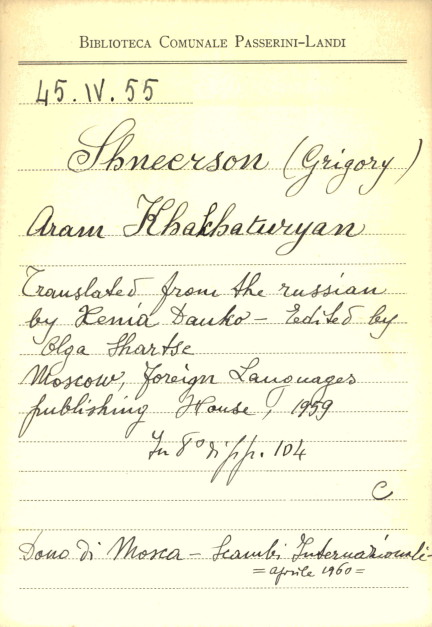 BIBLIOTECA COMUNALE PASSERINI-LANDI
45.IV.55
Shneerson (Grigory)
Aram Khakhaturyan
Translated from the russian
by Xenia Danko – Edited by
Olga Shartse
Moscow, Foreign Languages
publishing House, 1959
In 8° di pp. 104
C
Dono di Mosca – Scambi Internazionali –
= aprile 1960 =